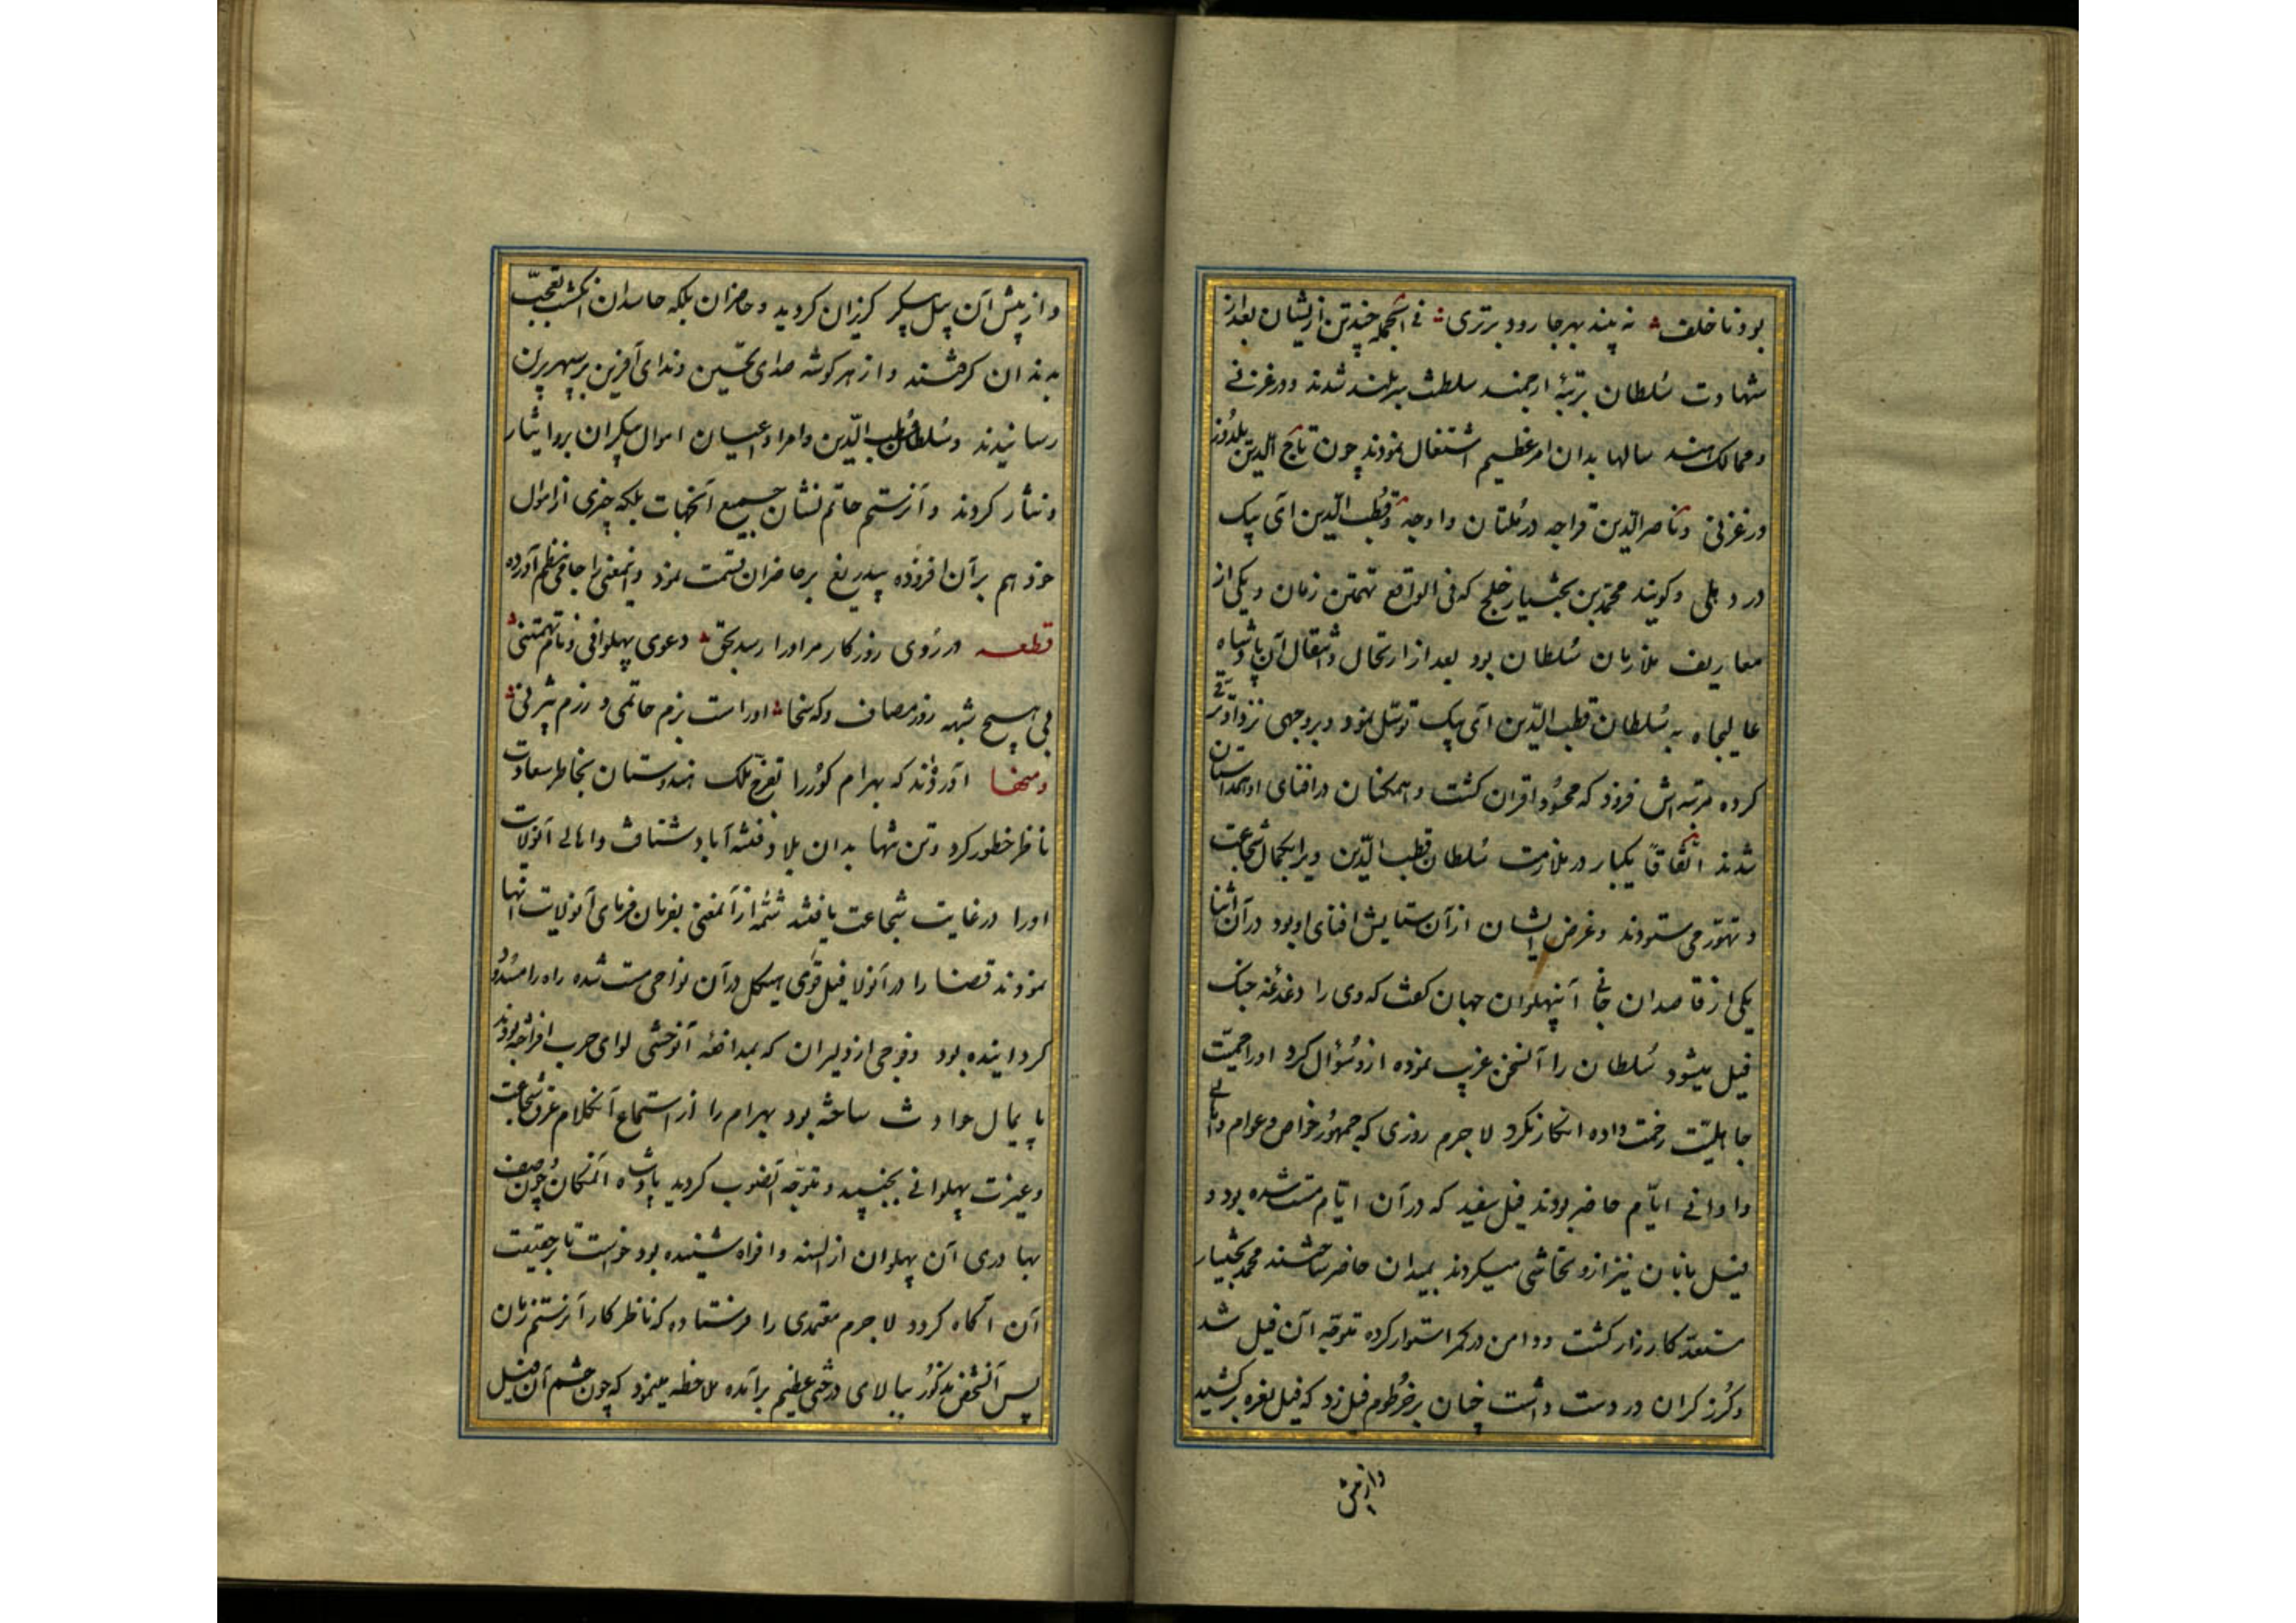 بود ناخلف نه بیند بهر جا رود برتری فی الجمله چند تن ازیشان بعد از
شهادت سُلطان برتبهٔ ارجمند سلطنت سربلند شدند و در غزنی
و ممالک هند سالها بدان امر عظیم اشتغال نمودند چون تاج الدین یلدُوز
در غزنی و ناصر الدین قراجه در مُلتان و اوچه و قُطب الدین ای بیک
در دهلی و کویند محمّد بن بختیار خلج که فی الواقع تهمتن زمان و یکی از
معاریف ملازمان سُلطان بود بعد از ارتحال و انتقال آن پادشاه
عالیجاه به سُلطان قطب الدّین ای بیک توسّل نمود و بروجهی نزد او ترقّی
کرده مرتبه اش فزود که محسُود اقران کشت و همکنان در افنای او همداستان
شدند اتّفاقاً یکبار در ملازمت سُلطان قطب الدّین ویرا بکمال شجاعت
و تهوّر می ستودند و غرض ایشان از آن ستایش افنای او بود در آن اثنا
یکی از قاصدان جانی آن پهلوان جهان کفت که وی را دغدغهٔ جنک
فیل میشود سُلطان را آن سخن غریب نموده ازو سُؤال کرد او را حمیّت
جاهلیّت رخصت نداده انکار نکرد لاجرم روزی که جمهُور خواص و عوام و اهالی
و ادانی ایّام حاضر بودند فیل سفید که در آن ایّام مست شده بود و
فیل بانان نیز ازو تحاشی میکردند بمیدان حاضر ساختند محمّد بختیار
مستعدّ کارزار کشت و دامن در کمر استوار کرده متوجّه آن فیل شد
و کُرز کران در دست داشت چنان بر خرطوم فیل زد که فیل نعره برکشید
و از پیش
و از پیش آن پیل پیکر کریزان کردید و حاضران بلکه حاسدان انکشت تعجّب
بدندان کرفتند و از هر کوشه صدای تحسین و ندای آفرین بر سپهر برین
رسانیدند و سُلطان قطب الدّین و امرا و اعیان اموال بیکران برو ایثار
و نثار کردند و آن رستم حاتم نشان جمیع آنجهات بلکه چیزی از اموال
خود هم بر آن افزوده بیدریغ بر حاضران قسمت نمود و اینمعنی را جامی بنظم آورده
قطعه در رُوی روزکار مر او را رسد بحق دعوی پهلوانی و نام تهمتنی
بی هیچ شبهه روز مصاف و که سخا او راست بزم حاتمی و رزم بیژنی
و منها آورده‌اند که بهرام کور را تفرّج ملک هندوستان بخاطر سعادت
ناظر خطور کرد و تن تنها بدان بلاد فتنه آباد شتافت و اهالی آنولایت
او را در غایت شجاعت یافتند شمّهٔ از آنمعنی بفرمان فرمای آنولایت انها
نمودند قضا را در آنولا فیل قوی هیکل در آن نواحی مست شده راه را مسدود
کردانیده بود و فوجی از دلیران که بمدافعهٔ آنوحشی لوای حرب افراخته بودند
پایمال حوادث ساخته بود بهرام را از استماع آنکلام عرق شجاعت
و غیرت پهلوانی بجنبید و متوجّه آنصوب کردید پادشاه آنمکان چون وصف
بهادری آن پهلوان از السنه و افواه شنیده بود خواست تا بر حقیقت
آن آکاه کردد لاجرم معتمدی را فرستاده که ناظر کار آن رستم زمان
پس آنشخص مذکُور ببالای درختی عظیم برآمده ملاحظه مینمود که چون چشم آن فیل